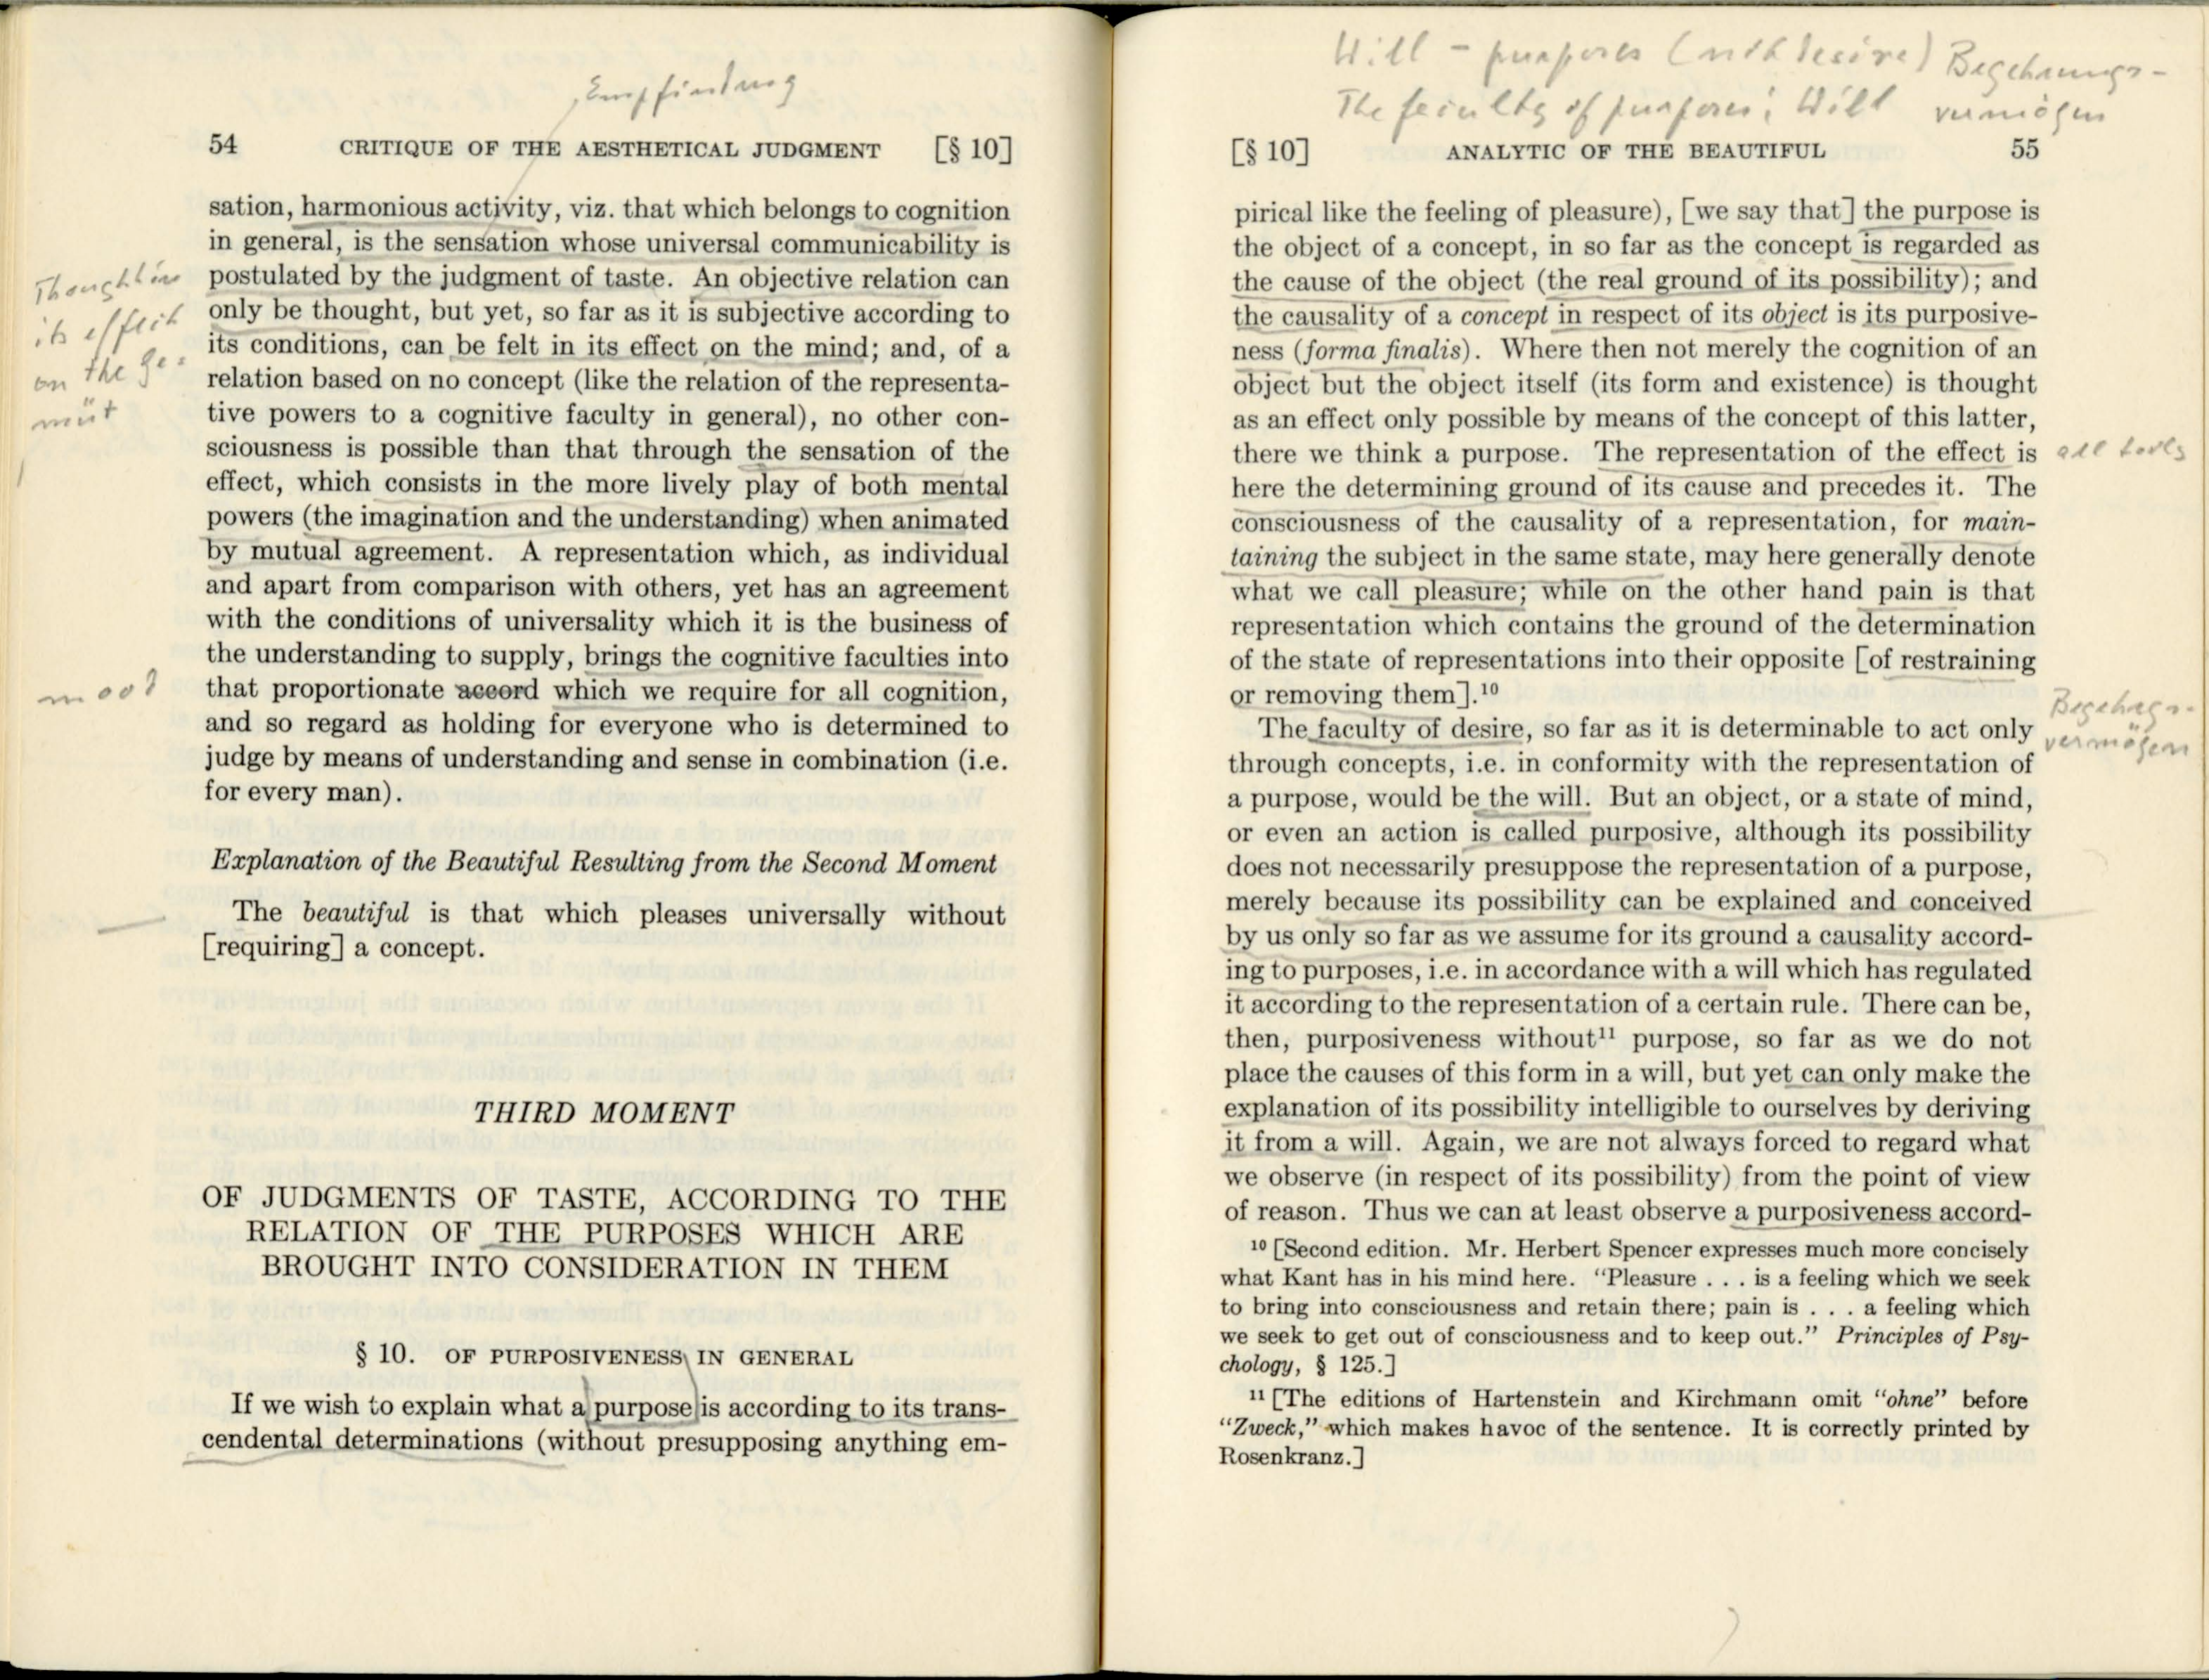 Empfindung
54 CRITIQUE OF THE AESTHETICAL JUDGMENT [§ 10]
sation, harmonious activity, viz. that which belongs to cognition
in general, is the sensation whose universal communicability is
postulated by the judgment of taste. An objective relation can
only be thought, but yet, so far as it is subjective according to
its conditions, can be felt in its effect on the mind; and, of a
relation based on no concept (like the relation of the representa-
tive powers to a cognitive faculty in general), no other con-
sciousness is possible than that through the sensation of the
effect, which consists in the more lively play of both mental
powers (the imagination and the understanding) when animated
by mutual agreement. A representation which, as individual
and apart from comparison with others, yet has an agreement
with the conditions of universality which it is the business of
the understanding to supply, brings the cognitive faculties into
that proportionate accord which we require for all cognition,
and so regard as holding for everyone who is determined to
judge by means of understanding and sense in combination (i.e.
for every man).
Thought in
its effect
on the Ge-
müt
mood
Explanation of the Beautiful Resulting from the Second Moment
The beautiful is that which pleases universally without
[requiring] a concept.
THIRD MOMENT
OF JUDGMENTS OF TASTE, ACCORDING TO THE
RELATION OF THE PURPOSES WHICH ARE
BROUGHT INTO CONSIDERATION IN THEM
§ 10. OF PURPOSIVENESS IN GENERAL
If we wish to explain what a purpose is according to its trans-
cendental determinations (without presupposing anything em-
Will - purposes (with desire) Begehrungs-
The faculty of purposes; Will vermögen
[§ 10] ANALYTIC OF THE BEAUTIFUL 55
pirical like the feeling of pleasure), [we say that] the purpose is
the object of a concept, in so far as the concept is regarded as
the cause of the object (the real ground of its possibility); and
the causality of a concept in respect of its object is its purposive-
ness (forma finalis). Where then not merely the cognition of an
object but the object itself (its form and existence) is thought
as an effect only possible by means of the concept of this latter,
there we think a purpose. The representation of the effect is
here the determining ground of its cause and precedes it. The
consciousness of the causality of a representation, for main-
taining the subject in the same state, may here generally denote
what we call pleasure; while on the other hand pain is that
representation which contains the ground of the determination
of the state of representations into their opposite [of restraining
or removing them].¹⁰
all tools
The faculty of desire, so far as it is determinable to act only
through concepts, i.e. in conformity with the representation of
a purpose, would be the will. But an object, or a state of mind,
or even an action is called purposive, although its possibility
does not necessarily presuppose the representation of a purpose,
merely because its possibility can be explained and conceived
by us only so far as we assume for its ground a causality accord-
ing to purposes, i.e. in accordance with a will which has regulated
it according to the representation of a certain rule. There can be,
then, purposiveness without¹¹ purpose, so far as we do not
place the causes of this form in a will, but yet can only make the
explanation of its possibility intelligible to ourselves by deriving
it from a will. Again, we are not always forced to regard what
we observe (in respect of its possibility) from the point of view
of reason. Thus we can at least observe a purposiveness accord-
Begehrgs-
vermögen
¹⁰ [Second edition. Mr. Herbert Spencer expresses much more concisely
what Kant has in his mind here. “Pleasure . . . is a feeling which we seek
to bring into consciousness and retain there; pain is . . . a feeling which
we seek to get out of consciousness and to keep out.” Principles of Psy-
chology, § 125.]
¹¹ [The editions of Hartenstein and Kirchmann omit “ohne” before
“Zweck,” which makes havoc of the sentence. It is correctly printed by
Rosenkranz.]